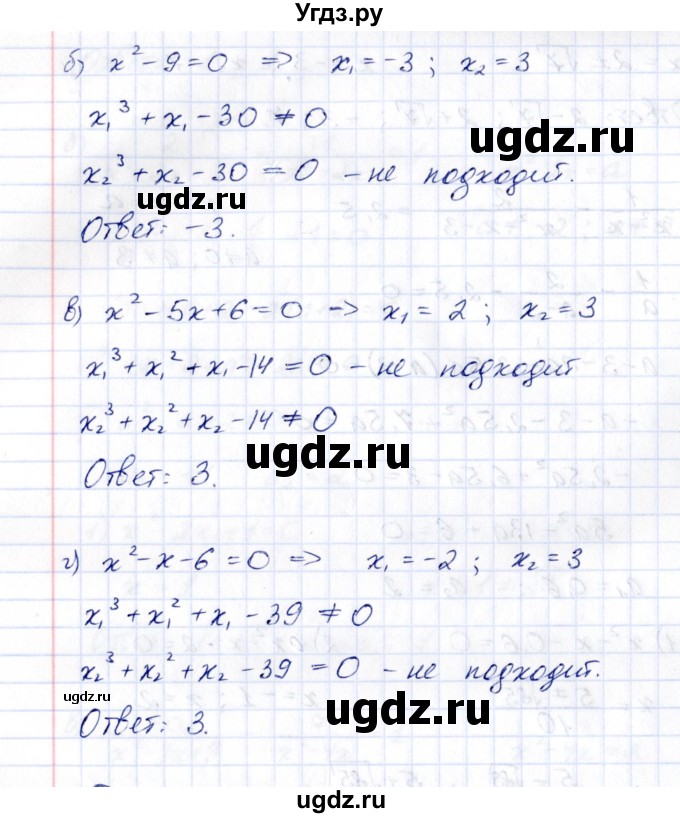 Угдз.ру
б) x² - 9 = 0 => x₁ = -3 ; x₂ = 3
x₁³ + x₁ - 30 ≠ 0
ugdz.ru
x₂³ + x₂ - 30 = 0 - не подходит.
ugdz.ru
Ответ: -3.
ugdz.ru
в) x² - 5x + 6 = 0 -> x₁ = 2 ; x₂ = 3
x₁³ + x₁² + x₁ - 14 = 0 - не подходит
ugdz.ru
x₂³ + x₂² + x₂ - 14 ≠ 0
ugdz.ru
Ответ: 3.
г) x² - x - 6 = 0 => x₁ = -2 ; x₂ = 3
x₁³ + x₁² + x₁ - 39 ≠ 0
x₂³ + x₂² + x₂ - 39 = 0 - не подходит.
ugdz.ru
ugdz.ru
Ответ: 3.
ugdz.ru